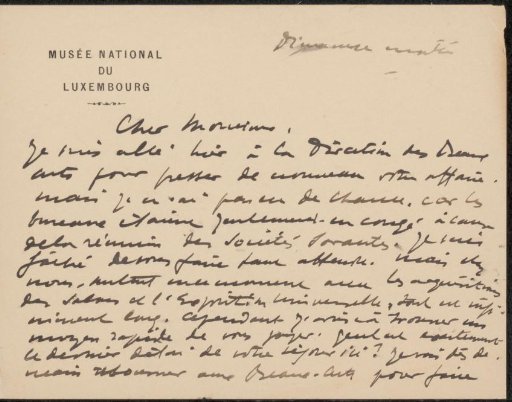 MUSÉE NATIONAL
DU
LUXEMBOURG
Dimanche matin
Cher Monsieur,
Je suis allé hier à la Direction des Beaux
arts pour presser de nouveau votre affaire.
mais je n'ai pas eu de chance, car les
bureaux étaient en congé à cause
de la réunion des Sociétés Savantes. Je suis
fâché de vous faire tant attendre. Mais chez
nous, surtout en ce moment avec les acquisitions
des Salons et l'Exposition Universelle, tout est infi-
niment long. Cependant j'arrive à trouver un
moyen rapide de vous payer. exactement
ce dernier délai de votre séjour ici? Je vais dès de-
main retourner aux Beaux-Arts pour faire